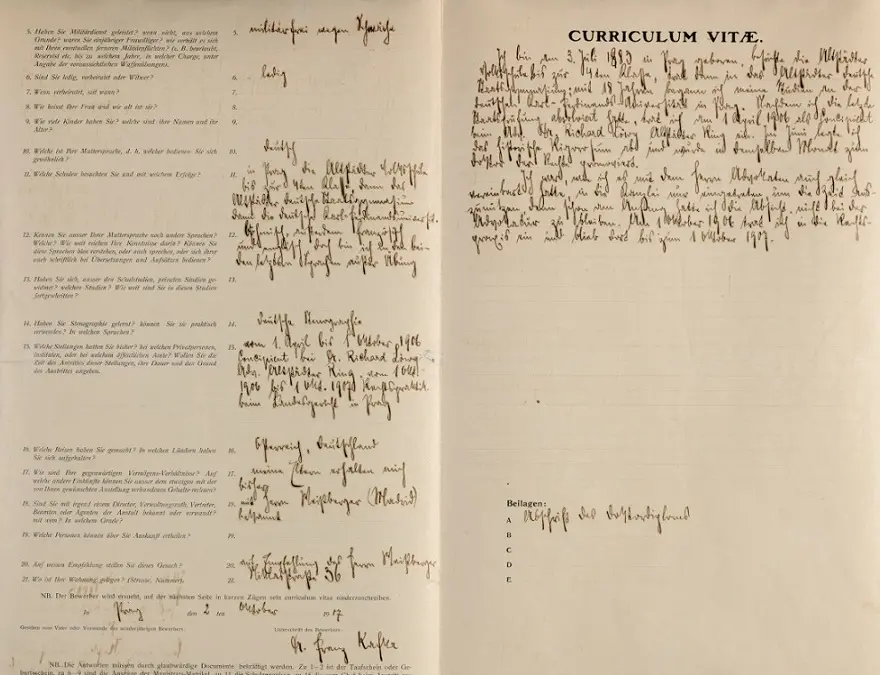 5. Haben Sie Militärdienst geleistet? wenn nicht, aus welchem
Grunde? waren Sie einjähriger Freiwilliger? wie verhält es sich
mit Ihren eventuellen ferneren Militärpflichten? (z. B. beurlaubt,
Reservist etc. bis zu welchem Jahre, in welcher Charge, unter
Angabe der voraussichtlichen Waffenübungen.
5. militärfrei wegen Schwäche
6. Sind Sie ledig, verheiratet oder Witwer?
6. ledig
7. Wenn verheiratet, seit wann?
7.
8. Wie heisst Ihre Frau und wie alt ist sie?
8.
9. Wie viele Kinder haben Sie? welche sind ihre Namen und ihr
Alter?
9.
10. Welche ist Ihre Muttersprache, d. h. welcher bedienen Sie sich
gewöhnlich?
10. deutsch
11. Welche Schulen besuchten Sie und mit welchem Erfolge?
11. in Prag die Altstädter Volksschule
bis zur 4ten Klasse, dann das
Altstädter deutsche Staatsgymnasium
dann die deutsche Karl-Ferdinandsuniversit.
12. Können Sie ausser Ihrer Muttersprache noch andere Sprachen?
Welche? Wie weit reichen Ihre Kenntnisse darin? Können Sie
diese Sprachen bloss verstehen, oder auch sprechen, oder sich ihrer
auch schriftlich bei Übersetzungen und Aufsätzen bedienen?
12. Böhmisch, außerdem französisch
und englisch, doch bin ich in den bei-
den letzten Sprachen außer Übung
13. Haben Sie sich, ausser den Schulstudien, privaten Studien ge-
widmet? welchen Studien? Wie weit sind Sie in diesen Studien
fortgeschritten?
13.
14. Haben Sie Stenographie gelernt? können Sie sie praktisch
anwenden? In welchen Sprachen?
14. deutsche Stenographie
15. Welche Stellungen hatten Sie bisher? bei welchen Privatpersonen,
Instituten, oder bei welchem öffentlichen Amte? Wollen Sie die
Zeit des Antrittes dieser Stellungen, ihre Dauer und den Grund
des Austrittes angeben.
15. vom 1. April bis 1 Oktober 1906
Concipient bei Dr. Richard Löwy
Adv. Altstädter Ring, vom 1 Okt.
1906 bis 1 Okt. 1907 Rechtspraktik.
beim Landesgericht in Prag
16. Welche Reisen haben Sie gemacht? In welchen Ländern haben
Sie sich aufgehalten?
16. Österreich, Deutschland
17. Wie sind Ihre gegenwärtigen Vermögens-Verhältnisse? Auf
welche andere Einkünfte können Sie ausser dem etwaigen mit der
von Ihnen gewünschten Anstellung verbundenen Gehalte rechnen?
17. meine Eltern erhalten mich
bisher
18. Sind Sie mit irgend einem Director, Verwaltungsrath, Vertreter,
Beamten oder Agenten der Anstalt bekannt oder verwandt?
mit wem? In welchem Grade?
18. mit Herrn Weißberger (Madrid)
bekannt
19. Welche Personen können über Sie Auskunft ertheilen?
19.
20. Auf wessen Empfehlung stellen Sie dieses Gesuch?
20. auf Empfehlung des Herrn Weißberger
21. Wo ist Ihre Wohnung gelegen? (Strasse, Nummer).
21. Niklasstraße 36
NB. Der Bewerber wird ersucht, auf der nächsten Seite in kurzen Zügen sein curriculum vitae niederzuschreiben.
In Prag den 2 ten Oktober 1907
Unterschrift des Bewerbers:
Dr. Franz Kafka
NB. Die Antworten müssen durch glaubwürdige Documente bekräftigt werden. Zu 1–2 ist der Taufschein oder Ge-
CURRICULUM VITÆ.
Ich bin am 3. Juli 1883 in Prag geboren, besuchte die Altstädter
Volksschule bis zur 4ten Klasse, trat dann in das Altstädter deutsche
Staatsgymnasium; mit 18 Jahren begann ich meine Studien an der
deutschen Karl-Ferdinands Universität in Prag. Nachdem ich die letzte
Staatsprüfung absolviert hatte, trat ich am 1 April 1906 als Concipient
beim Adv. Dr. Richard Löwy Altstädter Ring ein. Im Juni legte ich
das historische Rigorosum ab und wurde in demselben Monat zum
Doktor der Rechte promoviert.
Ich war, wie ich es mit dem Herrn Advokaten auch gleich
vereinbart hatte, in die Kanzlei nur eingetreten, um die Zeit aus-
zunützen denn schon am Anfang hatte ich die Absicht, nicht bei der
Advokatur zu bleiben. Am 1 Oktober 1906 trat ich in die Rechts-
praxis ein und blieb dort bis zum 1 Oktober 1907.
Beilagen:
A Abschrift des Doktordiploms
B
C
D
E